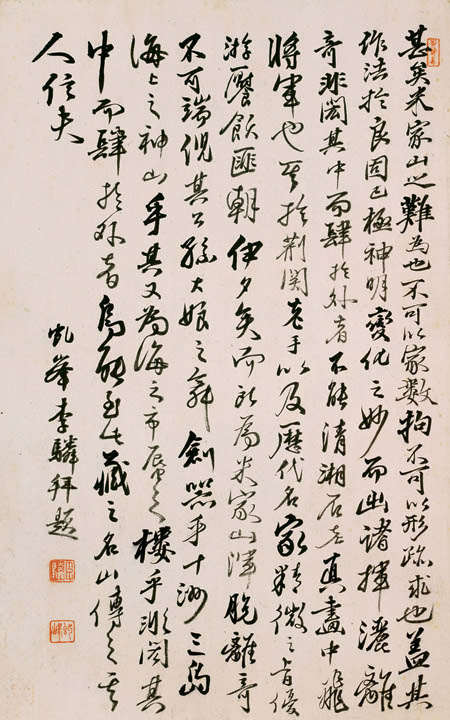 甚矣米家山之難為也不可以家數拘不可以形跡求也蓋其
作法於良固已極神明變化之妙而出諸揮灑離
奇非閎其中而肆於外者不能清湘石老真畫中飛
將軍也其於荆関老手以及歷代名家精微之旨優
游饜飫匪朝伊夕矣而所為米家山渾脫離奇
不可端倪其公孫大娘之舞劍器乎十洲三島
海上之神山乎其又為海之市蜃之樓乎非閎其
中而肆於外者烏能至此藏之名山傳之其
人信夫
虬峯李驎拜題